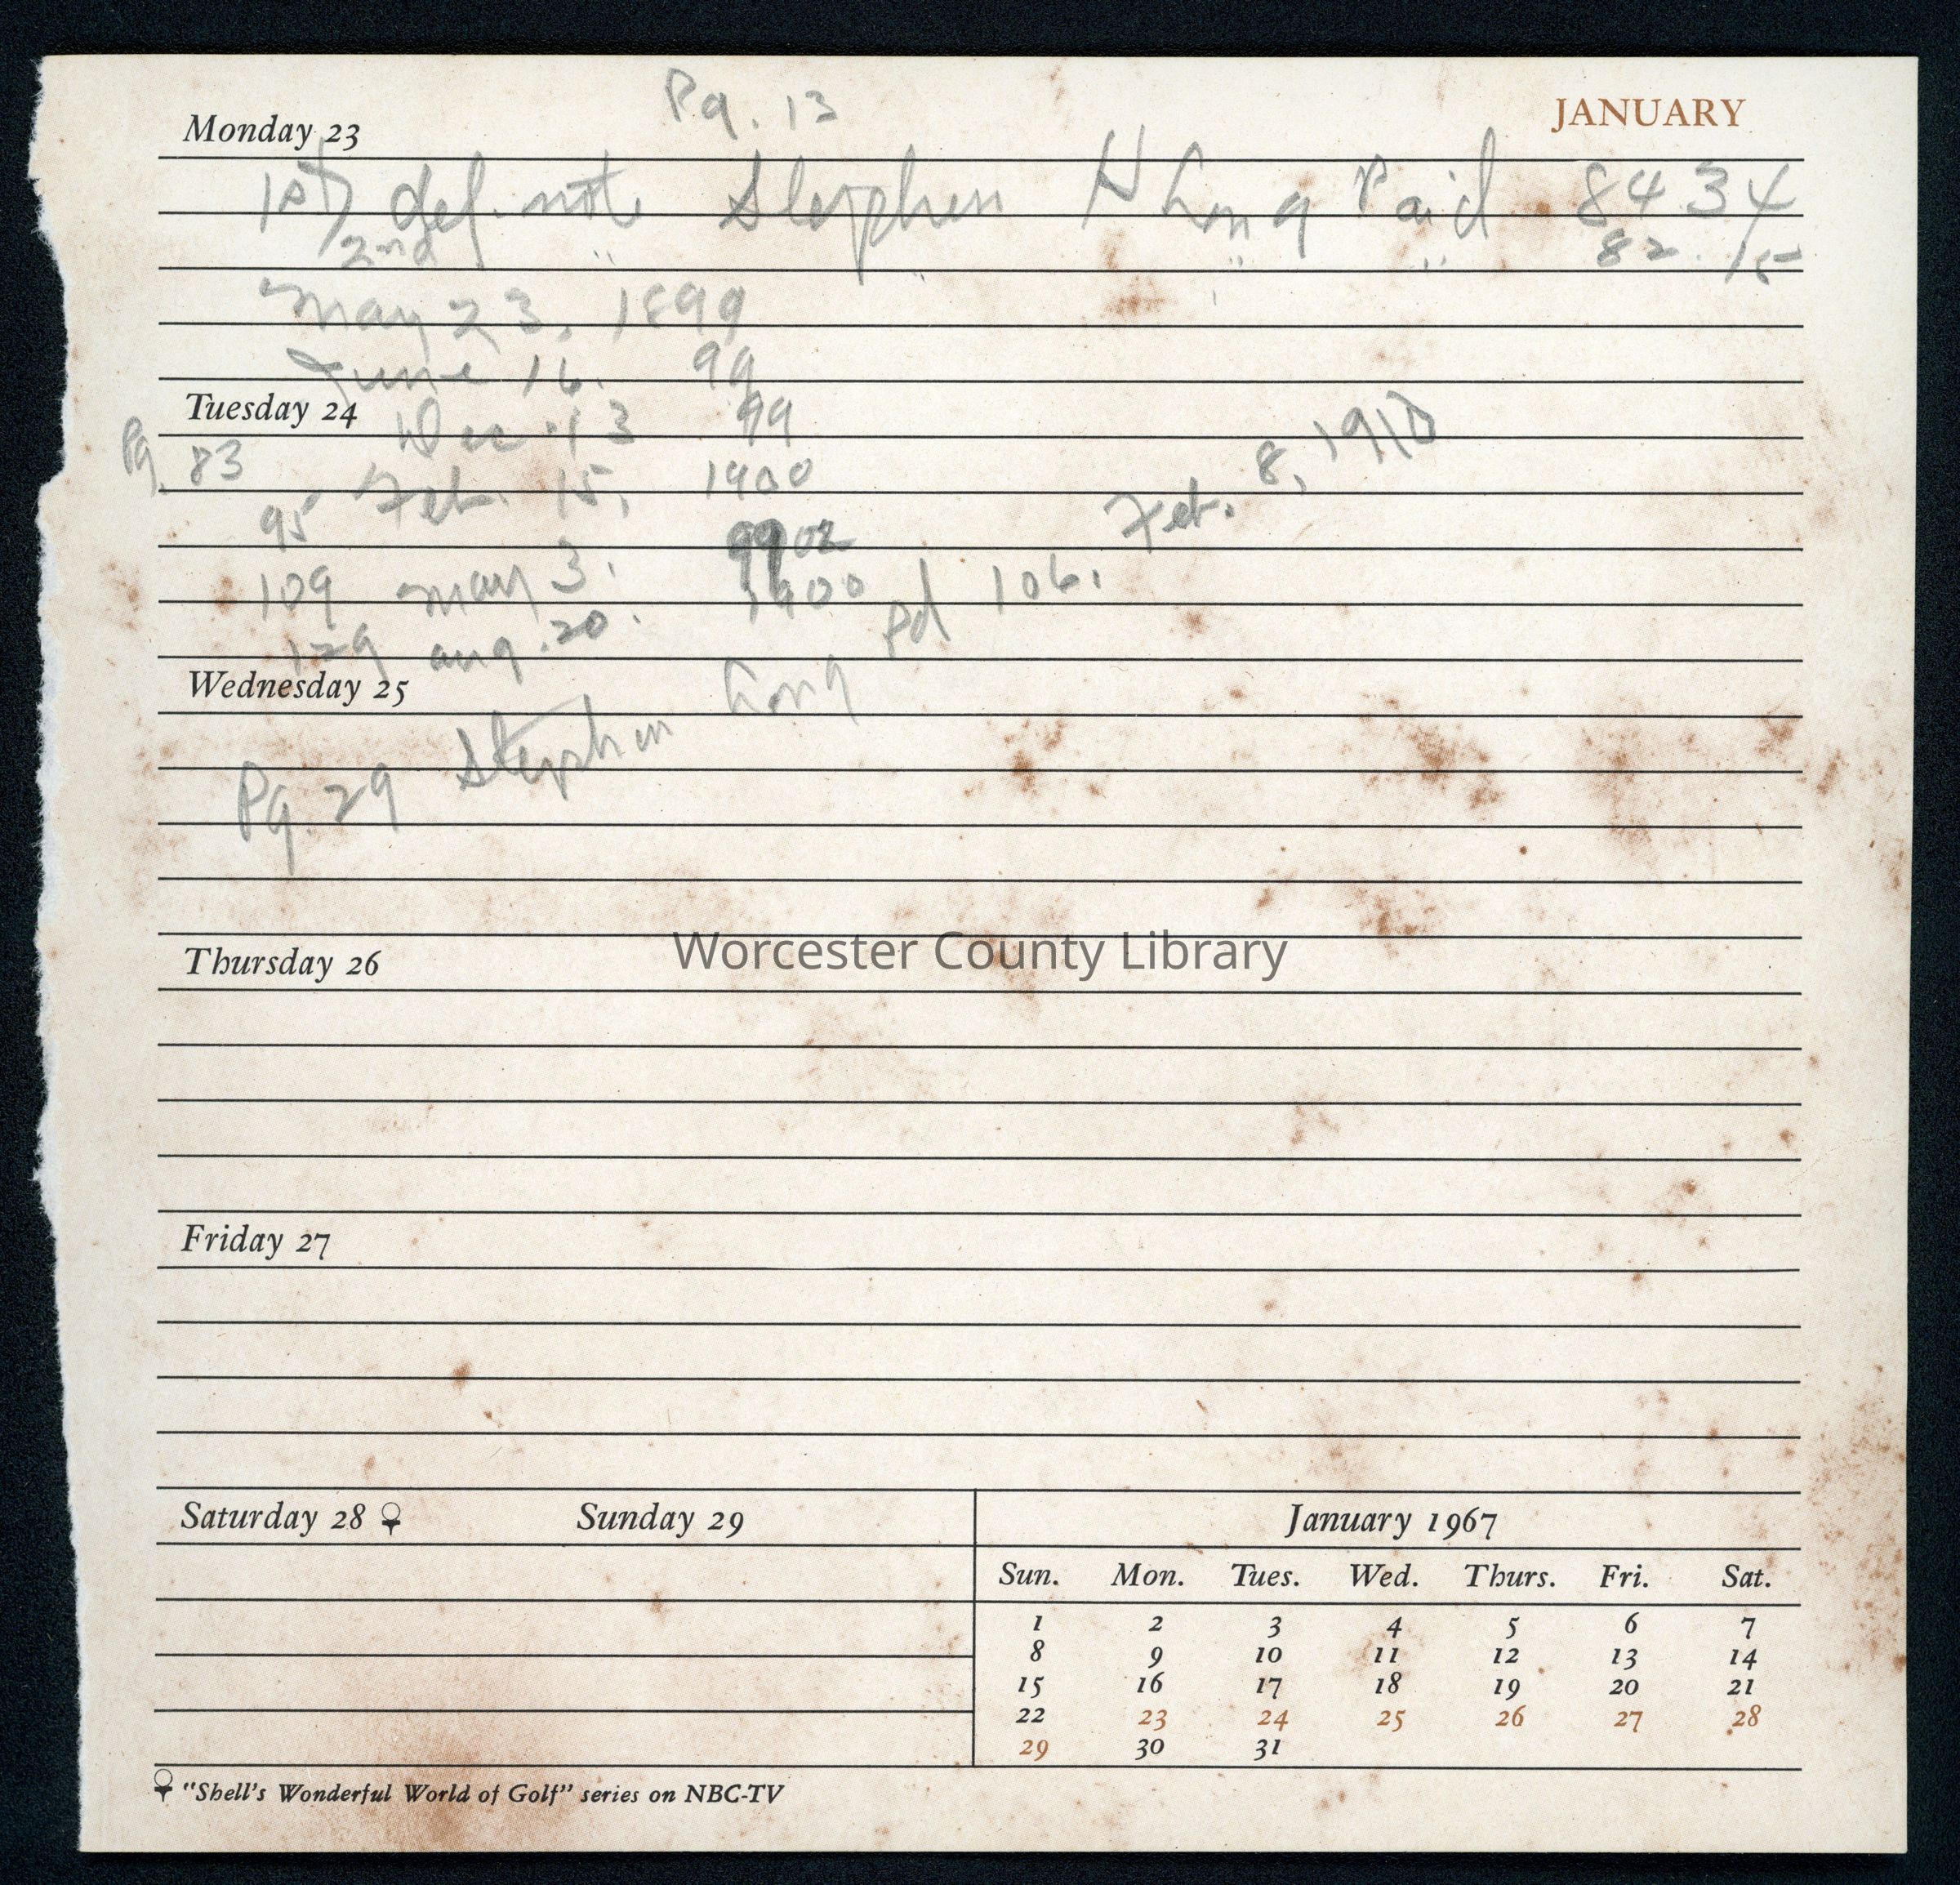 Pg. 13
JANUARY
Monday 23
1st def. note Stephen H Long Paid 84 34
2nd " " " " 82.15
May 23, 1899
June 16. 99
Tuesday 24
Dec. 13 99
Pg. 83
Feb. 15, 1900
95
Feb. 8, 1910
109 May 3. 02
129 Aug. 20. 1900
Wednesday 25
Pg. 29 Stephen Long Pd 106.
Worcester County Library
Thursday 26
Friday 27
Saturday 28 Sunday 29
January 1967
Sun. Mon. Tues. Wed. Thurs. Fri. Sat.
1 2 3 4 5 6 7
8 9 10 11 12 13 14
15 16 17 18 19 20 21
22 23 24 25 26 27 28
29 30 31
"Shell's Wonderful World of Golf" series on NBC-TV